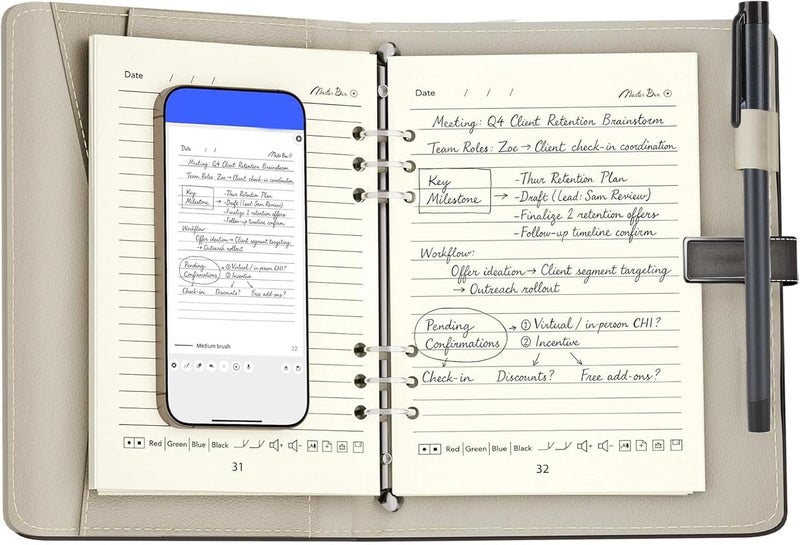 Date / / /
Master Ben
Date / / /
Master Ben
Meeting: Q4 Client Retention Brainstorm
Team Roles: Zoe → Client check-in coordination
Key Milestone
→ -Thur Retention Plan
-Draft (Lead: Sam Review)
-Finalize 2 retention offers
-Follow-up timeline confirm
Workflow:
Offer ideation → Client segment targeting
→ Outreach rollout
Pending Confirmations
→ ① Virtual / in-person CHI?
② Incentive
Check-in Discounts? Free add-ons?
Medium brush
32
Date / / /
Master Ben
Meeting: Q4 Client Retention Brainstorm
Team Roles: Zoe → Client check-in coordination
Key
Milestone
→ -Thur Retention Plan
-Draft (Lead: Sam Review)
-Finalize 2 retention offers
-Follow-up timeline confirm
Workflow:
Offer ideation → Client segment targeting
→ Outreach rollout
Pending
Confirmations
→ ① Virtual / in-person CHI?
② Incentive
Check-in Discounts? Free add-ons?
Red | Green | Blue | Black
31
Red | Green | Blue | Black
32